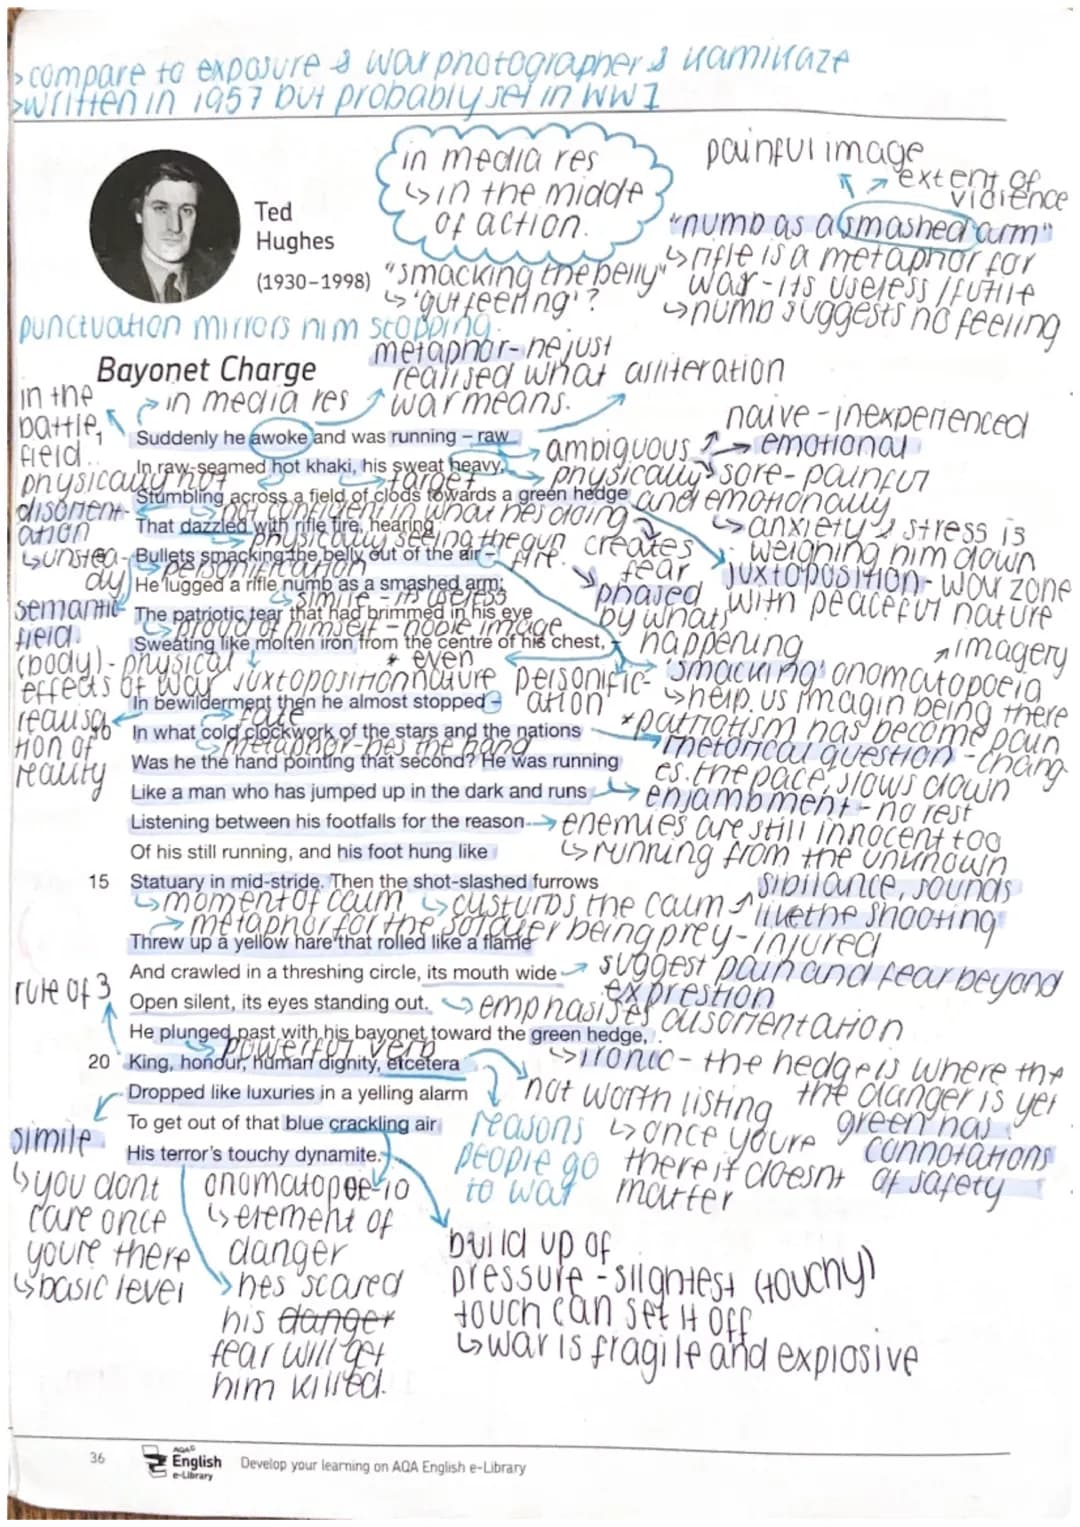 >compare to exposure & war photographer & kamikaze
>written in 1957 but probably set in WW1
in media res
↳ in the middle
of action.
painful image
extent of
violence
Ted
Hughes
(1930–1998)
"numb as a smashed arm"
↳ rifle is a metaphor for
war - its useless / futile
↳ numb suggests no feeling
"smacking the belly"
↳ 'gut feeling'?
punctuation mirrors him stopping.
metaphor- he just
realised what
war means.
alliteration
Bayonet Charge
in the
battle
field..
in media res
naive - inexperienced
Suddenly he awoke and was running – raw
ambiguous
→ emotional
In raw-seamed hot khaki, his sweat heavy,
physically hot
target
physically
and emotionally
sore - painful
Stumbling across a field of clods towards a green hedge
disorient-
ation
↳ unstea-
dy
not confident in what hes doing
↳ anxiety & stress is
weighing him down
That dazzled with rifle fire, hearing
physically seeing the gun fire.
creates
fear
Bullets smacking the belly out of the air –
personification
juxtoposition- war zone
with peaceful nature
He lugged a rifle numb as a smashed arm;
simile - its useless
phased
by whats
happening
semantic
field.
(body) - physical
effects of war
The patriotic tear that had brimmed in his eye
↳ proud of himself - noble image
Sweating like molten iron from the centre of his chest, –
juxtoposition
* even
nature
personific-
ation
imagery
'smacking' onomatopoeia
↳ help us imagin being there
*patriotism has become pain
In bewilderment then he almost stopped –
realisa-
tion of
reality
fate
In what cold clockwork of the stars and the nations
↳ metaphor-hes the hand
rhetorical question - chang
es. the pace, slows down
Was he the hand pointing that second? He was running
Like a man who has jumped up in the dark and runs
enjambment - no rest
Listening between his footfalls for the reason
→ enemies are still innocent too
↳ running from the unknown
Of his still running, and his foot hung like
15 Statuary in mid-stride. Then the shot-slashed furrows
↳ moment of calm
↳ disturbs the calm
sibilance, sounds
like the shooting
→ metaphor for the soldier being prey - injured
Threw up a yellow hare that rolled like a flame
And crawled in a threshing circle, its mouth wide
suggest pain and fear beyond
exprestion
rule of 3
Open silent, its eyes standing out.
↳ emphasises disorientation
He plunged past with his bayonet toward the green hedge,
↳ powerful verb
↳ ironic - the hedge is where the
the danger is yet
green has
connotations
of safety
20 King, honour, human dignity, etcetera
not worth listing
↳ once youre
there it doesnt
matter
Dropped like luxuries in a yelling alarm
reasons
people go
to war
To get out of that blue crackling air
His terror's touchy dynamite.
simile
↳ you dont
care once
youre there
↳ basic level
onomatopoe-ia
↳ element of
danger
hes scared
his danger
fear will get
him killed.
build up of
pressure - slightest (touchy)
touch can set it off
↳ war is fragile and explosive
36
AQA
English
e-Library
Develop your learning on AQA English e-Library